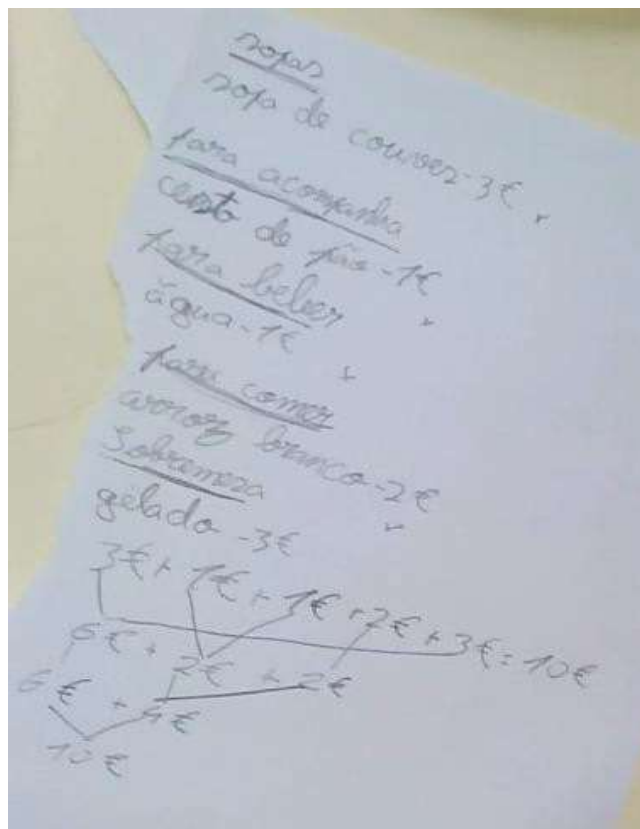 sopas
sopa de couves-3€
para acompanha
cesto de pão-1€
para beber
água-1€
para comer
arroz branco-2€
Sobremesa
gelado-3€
3€+1€+1€+2€+3€=10€
6€+2€+2€
6€+4€
10€